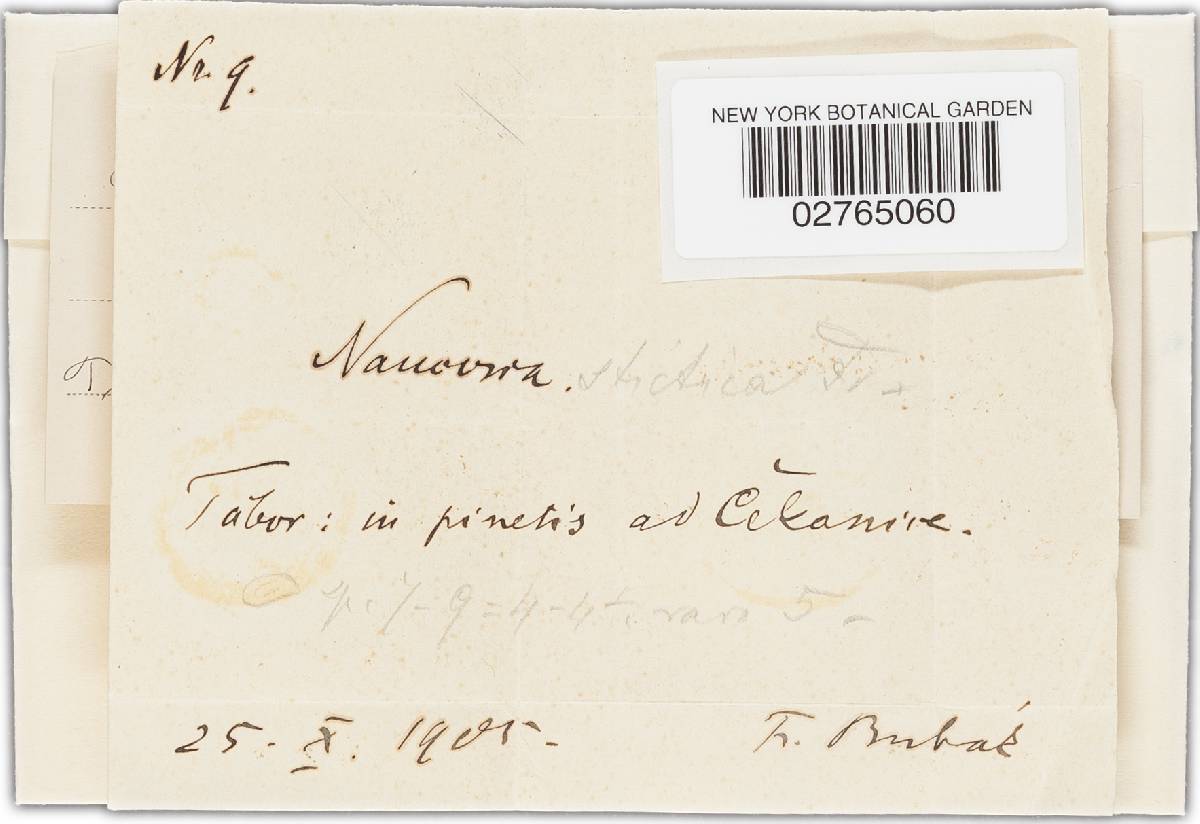 Nr. 9.
NEW YORK BOTANICAL GARDEN
02765060
Naucoria. stictica Fr.
Tábor: in pinetis ad Čekanice.
7-9=4-4½ raro 5
25. X. 1905.
Fr. Bubák